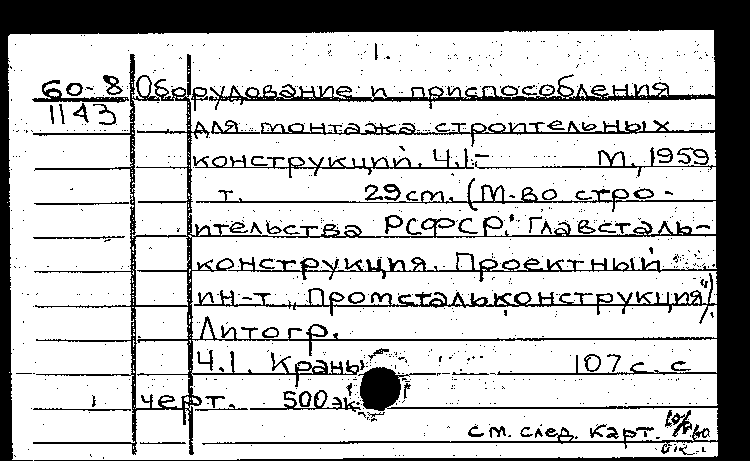 1.
60-8 Оборудование и приспособления
1143
для монтажа строительных
конструкций. Ч.1.- М., 1959
т. 29 см. (М-во стро-
ительства РСФСР. Главсталь-
конструкция. Проектный
ин-т "Промстальконструкция").
Литогр.
Ч.1. Краны 107 с. с
1 черт. 500 эк
см. след. карт.